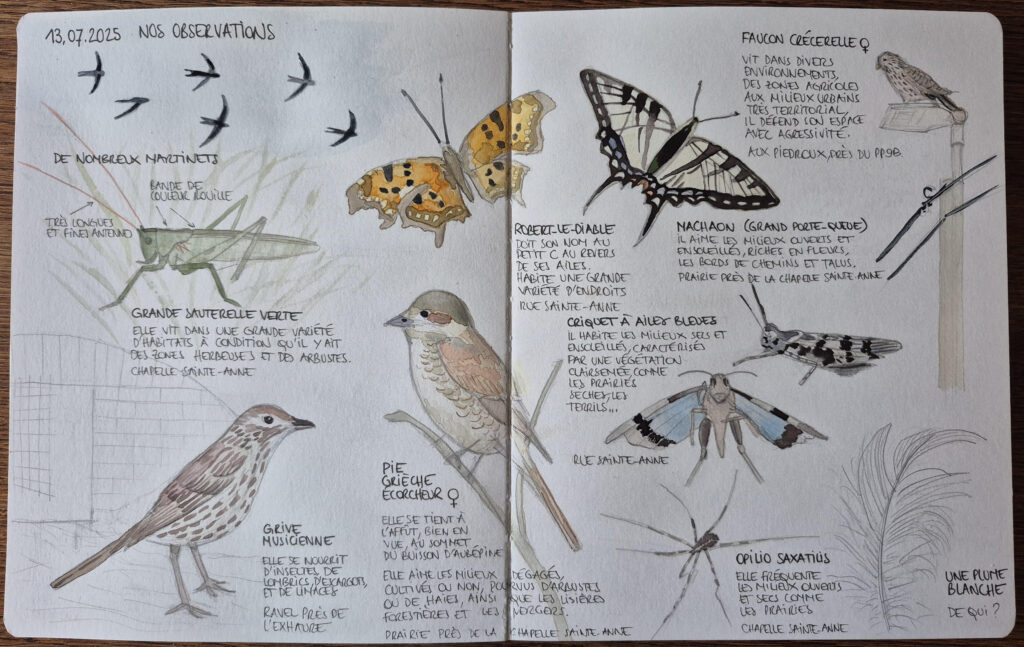 13,07.2025 NOS OBSERVATIONS
DE NOMBREUX MARTINETS
BANDE DE
COULEUR ROUILLE
TRÈS LONGUES
ET FINES ANTENNES
GRANDE SAUTERELLE VERTE
ELLE VIT DANS UNE GRANDE VARIÉTÉ
D'HABITATS À CONDITION QU'IL Y AIT
DES ZONES HERBEUSES ET DES ARBUSTES.
CHAPELLE SAINTE-ANNE
GRIVE
MUSICIENNE
ELLE SE NOURRIT
D'INSECTES, DE
LOMBRICS, D'ESCARGOTS,
ET DE LIMACES
RAVEL PRÈS DE
L'EXHAURE
PIE
GRIÈCHE
ECORCHEUR ♀
ELLE SE TIENT À
L'AFFÛT, BIEN EN
VUE, AU SOMMET
DU BUISSON D'AUBÉPINE
ELLE AIME LES MILIEUX DÉGAGÉS,
CULTIVÉS OU NON, POURVUS D'ARBUSTES
OU DE HAIES, AINSI QUE LES LISIÈRES
FORESTIÈRES ET LES VERGERS.
PRAIRIE PRÈS DE LA CHAPELLE SAINTE-ANNE
ROBERT-LE-DIABLE
DOIT SON NOM AU
PETIT C AU REVERS
DE SES AILES.
HABITE UNE GRANDE
VARIÉTÉ D'ENDROITS
RUE SAINTE-ANNE
FAUCON CRÉCERELLE ♀
VIT DANS DIVERS
ENVIRONNEMENTS,
DES ZONES AGRICOLES
AUX MILIEUX URBAINS
TRÈS TERRITORIAL,
IL DÉFEND SON ESPACE
AVEC AGRESSIVITÉ.
AUX PIEDROUX, PRÈS DU PP9B.
MACHAON (GRAND PORTE-QUEUE)
IL AIME LES MILIEUX OUVERTS ET
ENSOLEILLÉS, RICHES EN FLEURS,
LES BORDS DE CHEMINS ET TALUS.
PRAIRIE PRÈS DE LA CHAPELLE SAINTE ANNE
CRIQUET À AILES BLEUES
IL HABITE LES MILIEUX SECS ET
ENSOLEILLÉS, CARACTÉRISÉS
PAR UNE VÉGÉTATION
CLAIRSEMÉE, COMME
LES PRAIRIES
SÈCHES, LES
TERRILS...
RUE SAINTE-ANNE
OPILIO SAXATILIS
ELLE FRÉQUENTE
LES MILIEUX OUVERTS
ET SECS COMME
LES PRAIRIES
CHAPELLE SAINTE-ANNE
UNE PLUME
BLANCHE
DE QUI ?